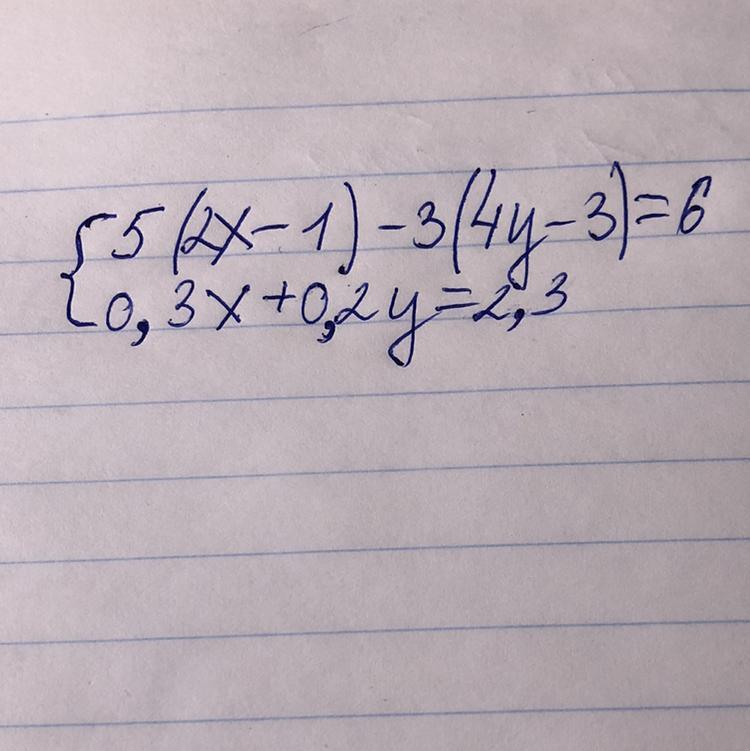 {5(2x-1)-3(4y-3)=6
0,3x+0,2y=2,3